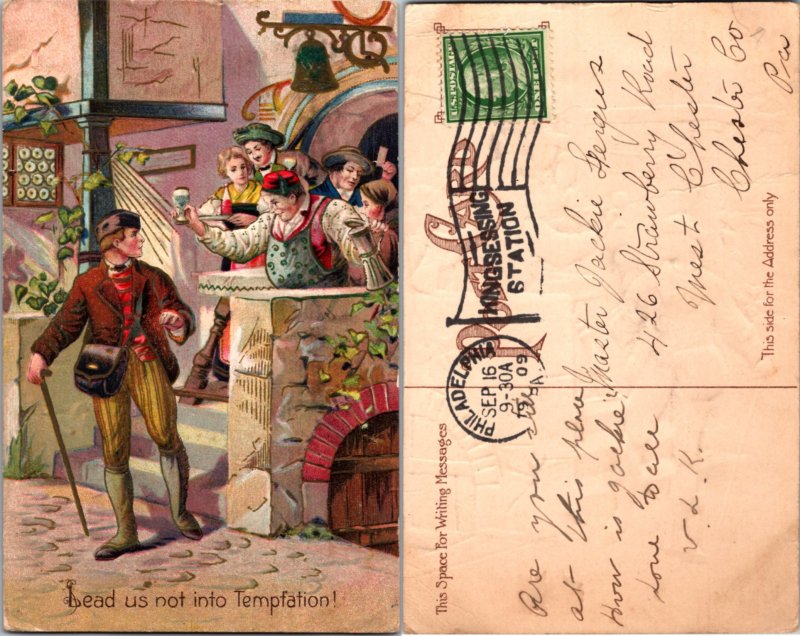 Lead us not into Temptation!
POST CARD
This Space For Writing Messages
This side for the Address only
U.S. POSTAGE
ONE CENT
PHILADELPHIA
SEP 16
9-30A
09
PA.
KINGSESSING
STATION
Are you still
at this place
How is Jackie
Love
V. L. K.
Master Jackie Fergus
426 Strawberry Road
West Chester
Chester Co
Pa